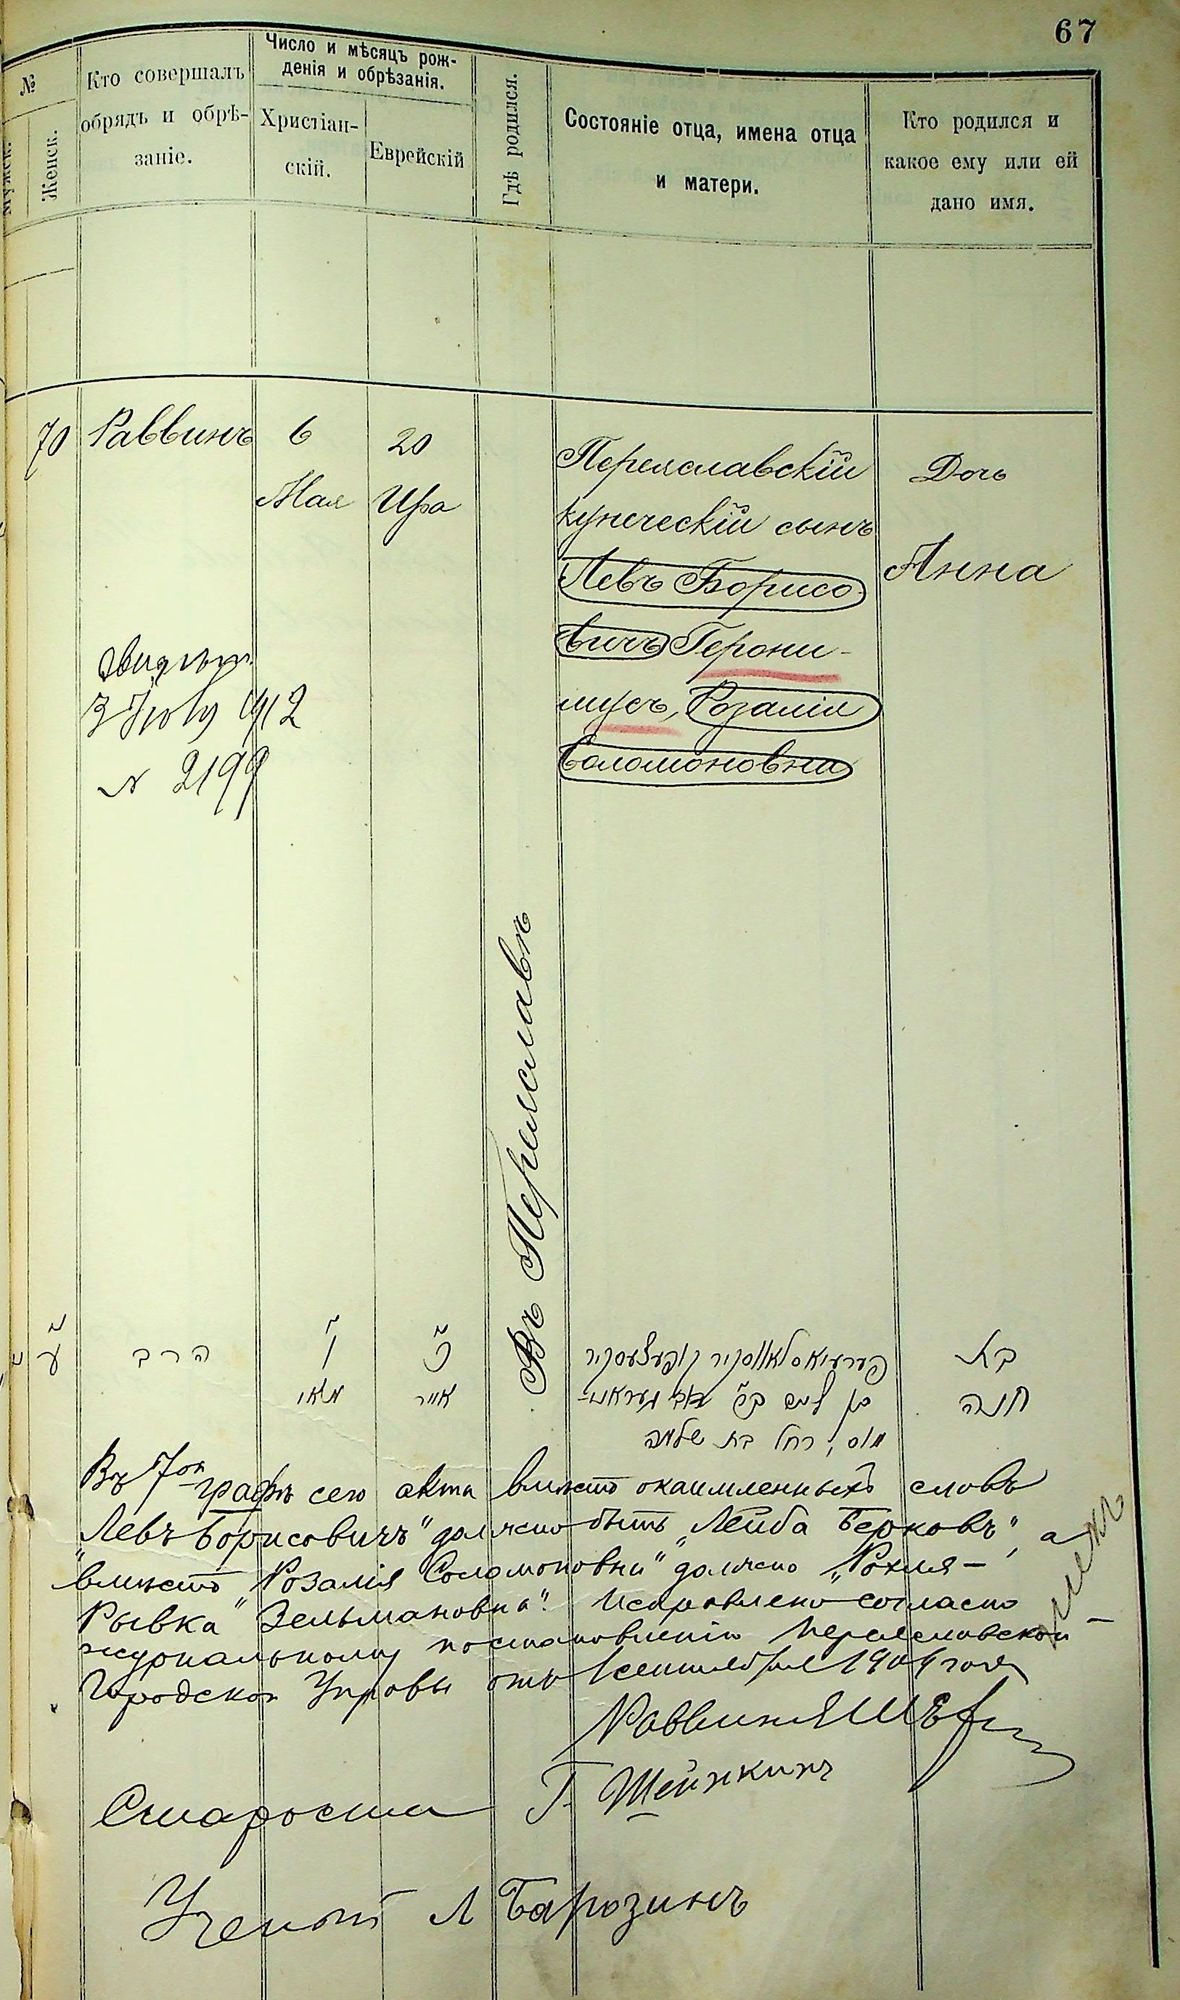 67
№
Мужск.
Женск.
Кто совершалъ
обрядъ и обрѣ-
заніе.
Число и мѣсяцъ рож-
денія и обрѣзанія.
Христіан-
скій.
Еврейскій
Гдѣ родился.
Состояніе отца, имена отца
и матери.
Кто родился и
какое ему или ей
дано имя.
70
Раввинъ
6
Мая
20
Ира
Въ Переяславѣ
Переяславскій
купеческій сынъ
Левъ Борисо-
вичъ Герони-
мусъ, Розалія
Соломоновна
Дочь
Анна
3 July 1912
№ 2199
ע
הרב
ו
מאי
כ
אייר
פערעיאסלאווסקיר קופעצעסקיר
בן
מוס, רחל בת שלמה
בת
חנה
Въ 7ой графѣ сего акта вмѣсто окаймленныхъ словъ
„Левъ Борисовичъ" должно быть „Лейба Берковъ", а
вмѣсто „Розалія Соломоновна" должно „Рохля-
Рывка Зельмановна". Исправлено согласно
журнальному постановленію Переяславской
Городской Управы отъ 1 сентября 1909 года
Раввинъ
Староста Г. Шейнкинъ
Ученый Л Барозинъ